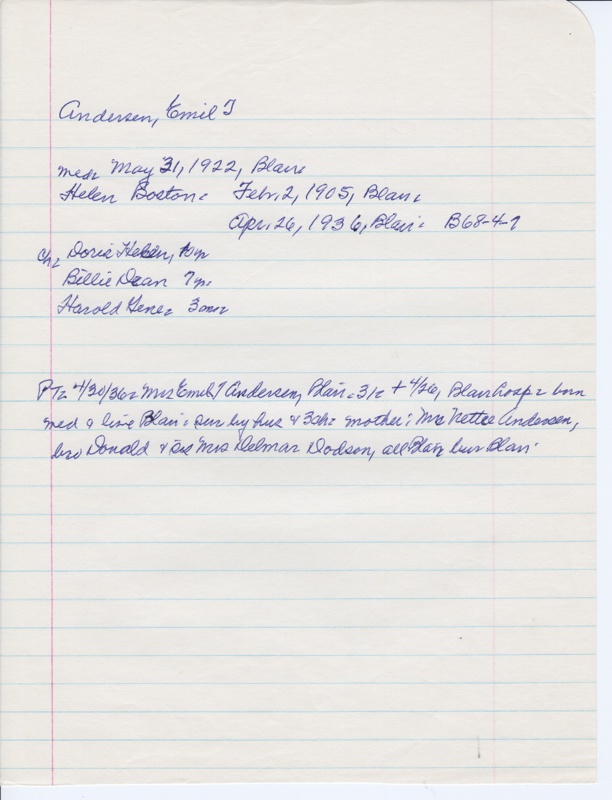 Andersen, Emil T
med: May 31, 1922, Blair:
Helen Boston: Febr. 2, 1905, Blair:
Apr. 26, 1936, Blair: B68-4-7
Ch: Doris Helen, 10yr
Billie Dean 7yr:
Harold Gene: 3mo:
PT: 4/30/36: Mrs Emil T Andersen, Blair: 31: + 4/26, Blair hosp: born
med & live Blair: sur by hus & 3ch: mother: Mrs Nettie Andersen,
bro Donald & sis Mrs Delmar Dodson, all Blair, bur Blair: